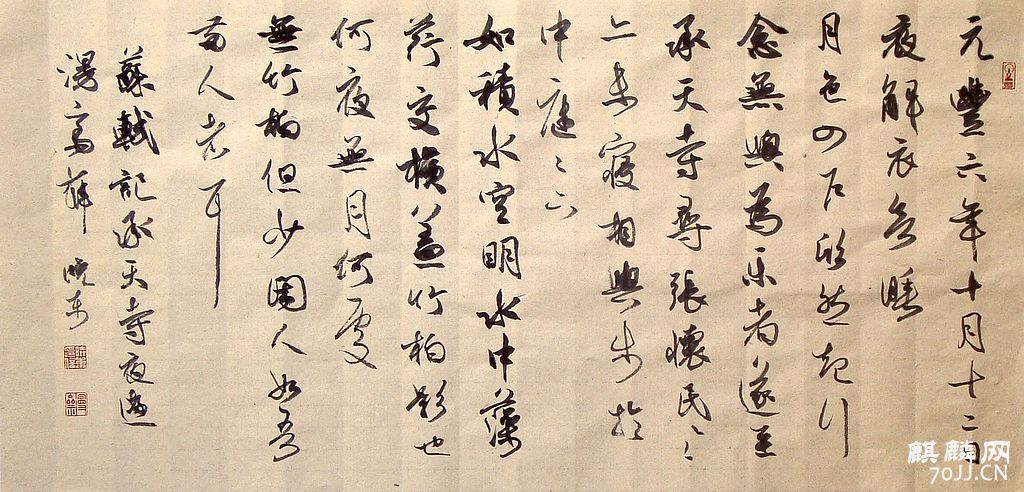 元豐六年十月十二日
夜解衣欲睡
月色入户欣然起行
念無與為乐者遂至
承天寺尋張懷民々
亦未寢相與步於
中庭々下
如積水空明水中藻
荇交橫蓋竹柏影也
何夜無月何處
無竹柏但少閑人如吾
兩人者耳
蘇軾記承天寺夜遊
漫寫薛晓东
麒麟网
70JJ.CN